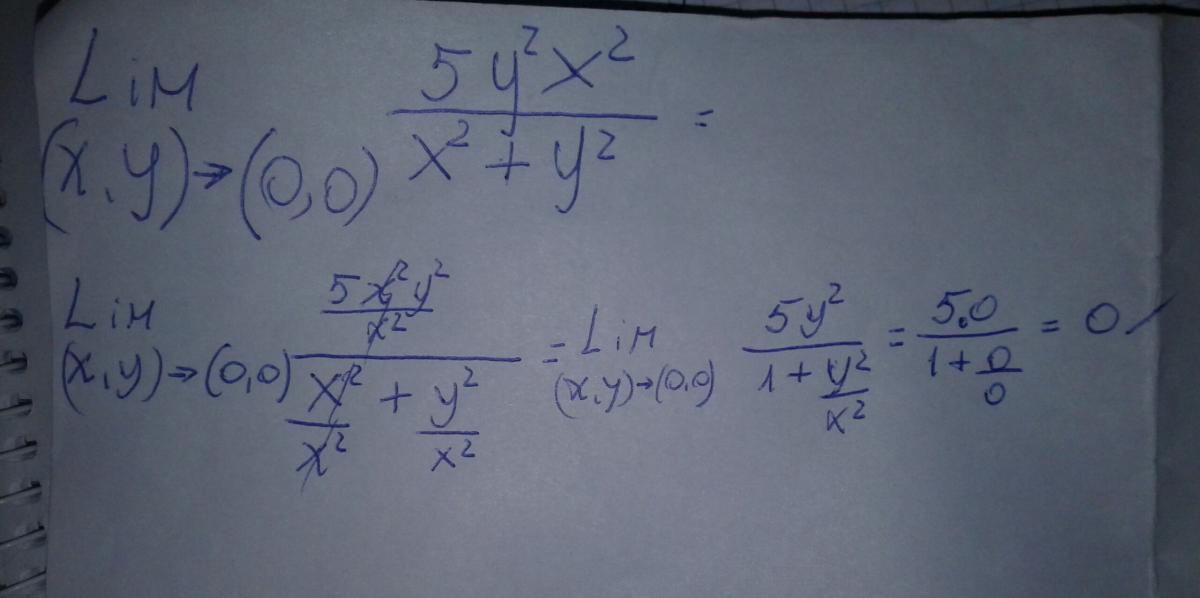 Lim (x,y)→(0,0) 5y²x² / x² + y² =
Lim (x,y)→(0,0) (5x²y²/x²) / (x²/x² + y²/x²) = Lim (x,y)→(0,0) 5y² / (1 + y²/x²) = 5.0 / (1 + 0/0) = 0